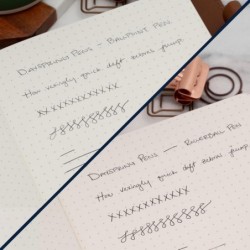 Dayspring Pens - Ballpoint Pen
How vexingly quick daft zebras jump
xxxxxxxxxxxx
Dayspring Pens — Rollerball Pen
How vexingly quick daft zebras jump
xxxxxxxxxxx